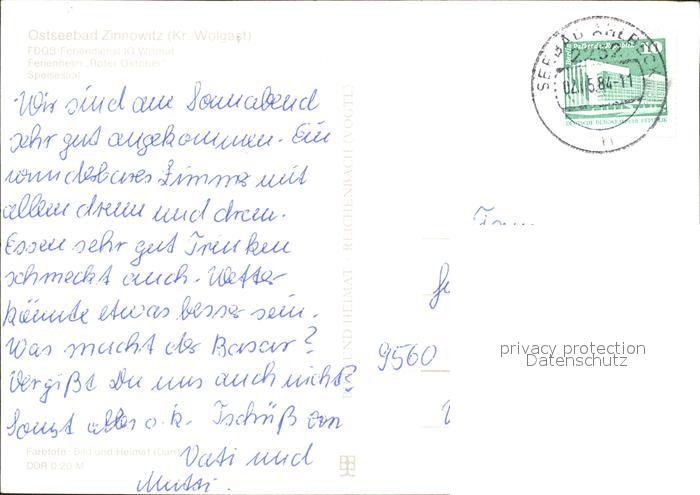 Ostseebad Zinnowitz (Kr. Wolgast)
FDGB-Feriendienst IG Wismut
Ferienheim „Roter Oktober"
Speisesaal
Wir sind am Sonnabend
sehr gut angekommen. Ein
wunderbares Zimmer mit
allem drum und dran.
Essen sehr gut Trinken
schmeckt auch. Wetter
könnte etwas besser sein.
Was macht der Basar?
Vergißt Du uns auch nicht?
Sonst alles o.k. Tschüß von
Vati und
Mutti.
Farbfoto: Bild und Heimat
DDR 0,20 M
BILD UND HEIMAT REICHENBACH (VOGTL)
SEEBAD AHLBECK
2252
02.-5.84-11
DEUTSCHE DEMOKRATISCHE REPUBLIK
10
9560
privacy protection
Datenschutz